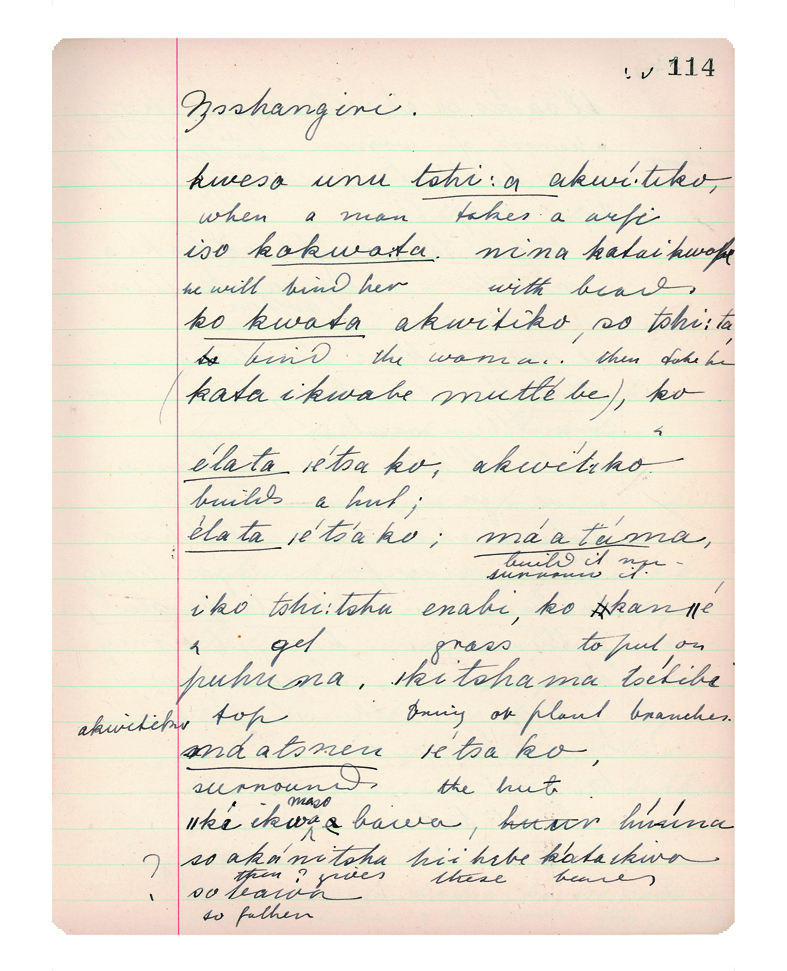 114
kweso unu tshi:a akwitiko,
when a man takes a wife
iso kakwata. nina kataikwabe
he will bind her with beads
ko kwata akwitiko, so tshi:ta
to bind the woman. then take
(kata ikwabe mutlébe), ko
élata iétsa ko, akwétiko
builds a hut;
élata iétsáko; máatáma,
build it
surround it.
iko tshi:tsha enabi, ko ǁkanǁé
get grass to put on
puhuna. ikitshama tsétibe
akwitiko top bring or plant branches
máatsnen iétsa ko,
surrounds the hut
bawa, húkúna
so akánitsha hiihebe kátaikwa
? then? gives these beads
so bawa
so father